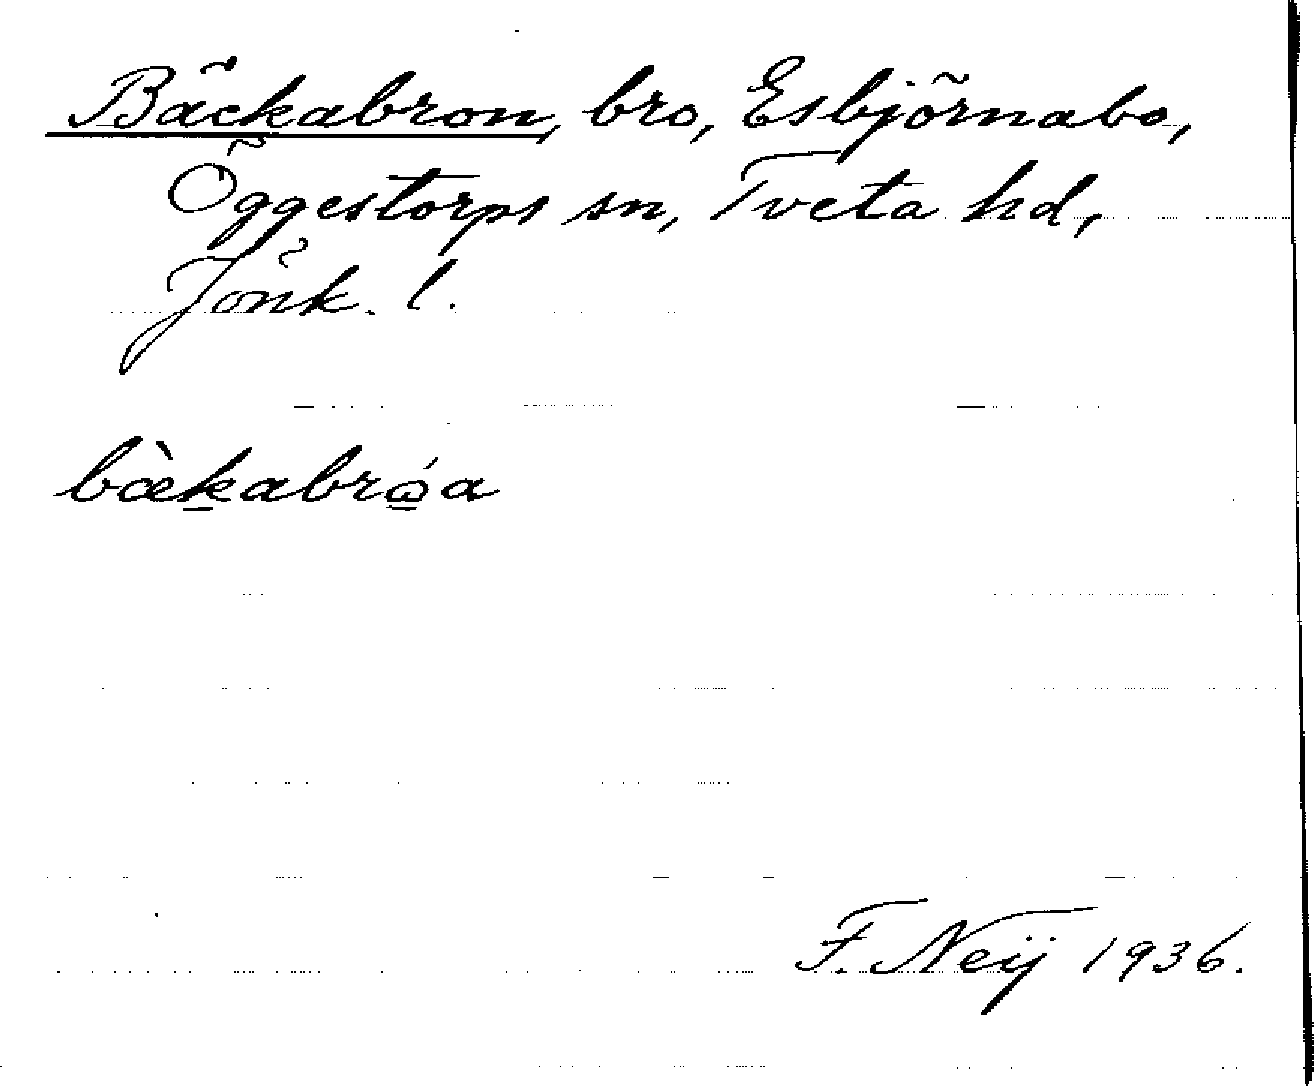 Bäckabron, bro, Esbjörnabo,
Öggestorps sn, Tveta hd,
Jönk. l.
bæ̀k̠abrώ̠a
F. Neij 1936.